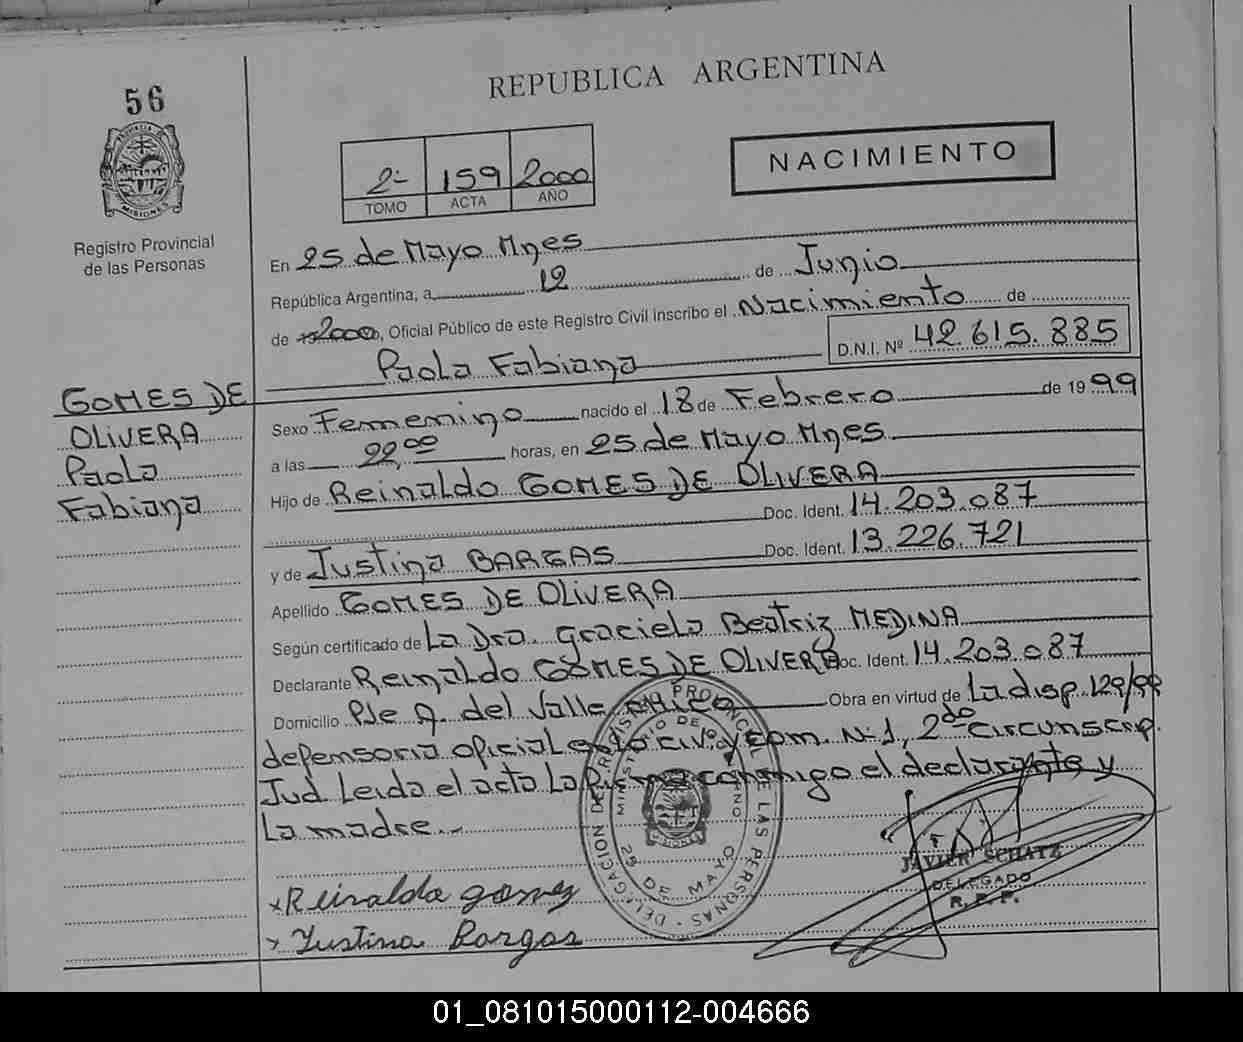 56
REPUBLICA ARGENTINA
2- 159 2000
TOMO ACTA AÑO
NACIMIENTO
MISIONES
Registro Provincial
de las Personas
En 25 de Mayo Mnes
República Argentina, a 12 de Junio
de 2000, Oficial Público de este Registro Civil inscribo el Nacimiento de
Paola Fabiana D.N.I. Nº 42.615.885
GOMES DE
OLIVERA
Paola
Fabiana
Sexo Femenino nacido el 18 de Febrero de 1999
a las 22,00 horas, en 25 de Mayo Mnes
Hijo de Reinaldo GOMES DE OLIVERA
Doc. Ident. 14.203.087
y de Justina BARGAS Doc. Ident. 13.226.721
Apellido GOMES DE OLIVERA
Según certificado de La Dra. Graciela Beatriz MEDINA
Declarante Reinaldo GOMES DE OLIVERA Doc. Ident. 14.203.087
Domicilio Pje A. del Valle chico Obra en virtud de La disp. 129/99
defensoria oficial en lo civ. y com. N.1, 2da circunscrip.
Jud Leida el acta La firma conmigo el declarante y
La madre.-
DELEGACION DE REGISTRO PROVINCIAL DE LAS PERSONAS
MINISTERIO DE
25 DE MAYO
MISIONES
JAVIER SCHATZ
DELEGADO
R. P. P.
x Reinaldo gomez
x Justina Bargas
01_081015000112-004666